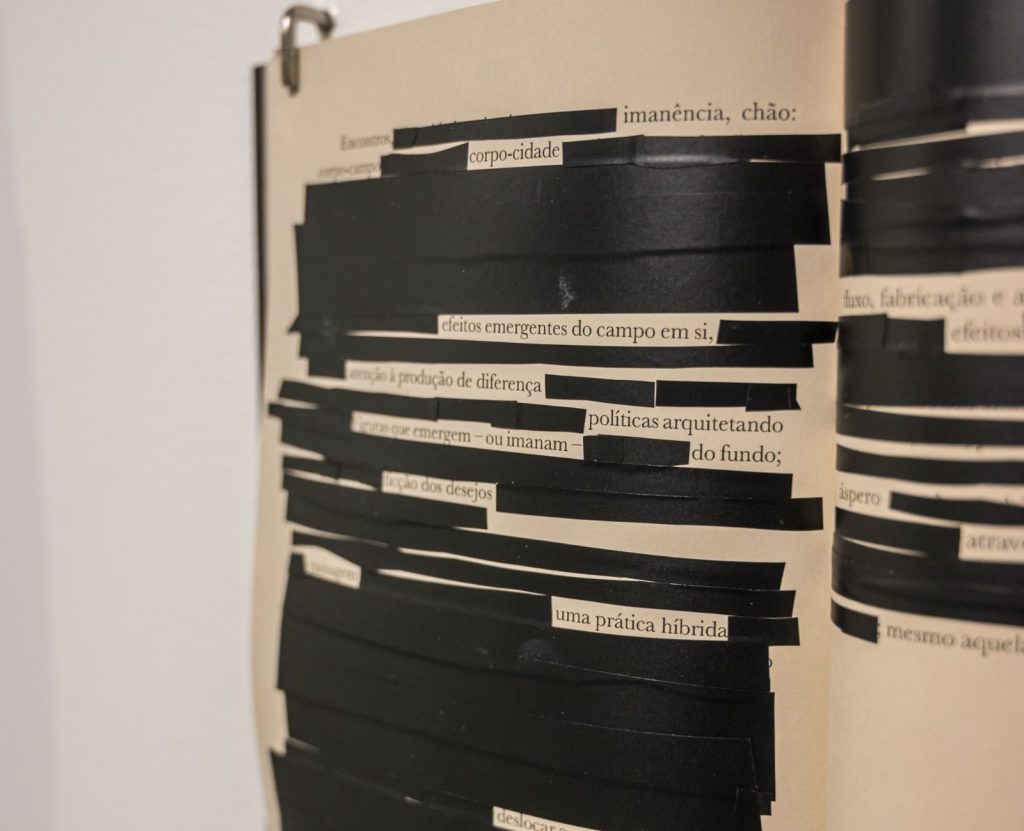 Encontros, imanência, chão:
corpo-campo corpo-cidade
efeitos emergentes do campo em si,
atenção à produção de diferença
políticas arquitetando
Figuras que emergem – ou imanam – do fundo;
ficção dos desejos
paisagem
uma prática híbrida
deslocar
fluxo, fabricação e a
efeitos
áspero
atrav
; mesmo aquela